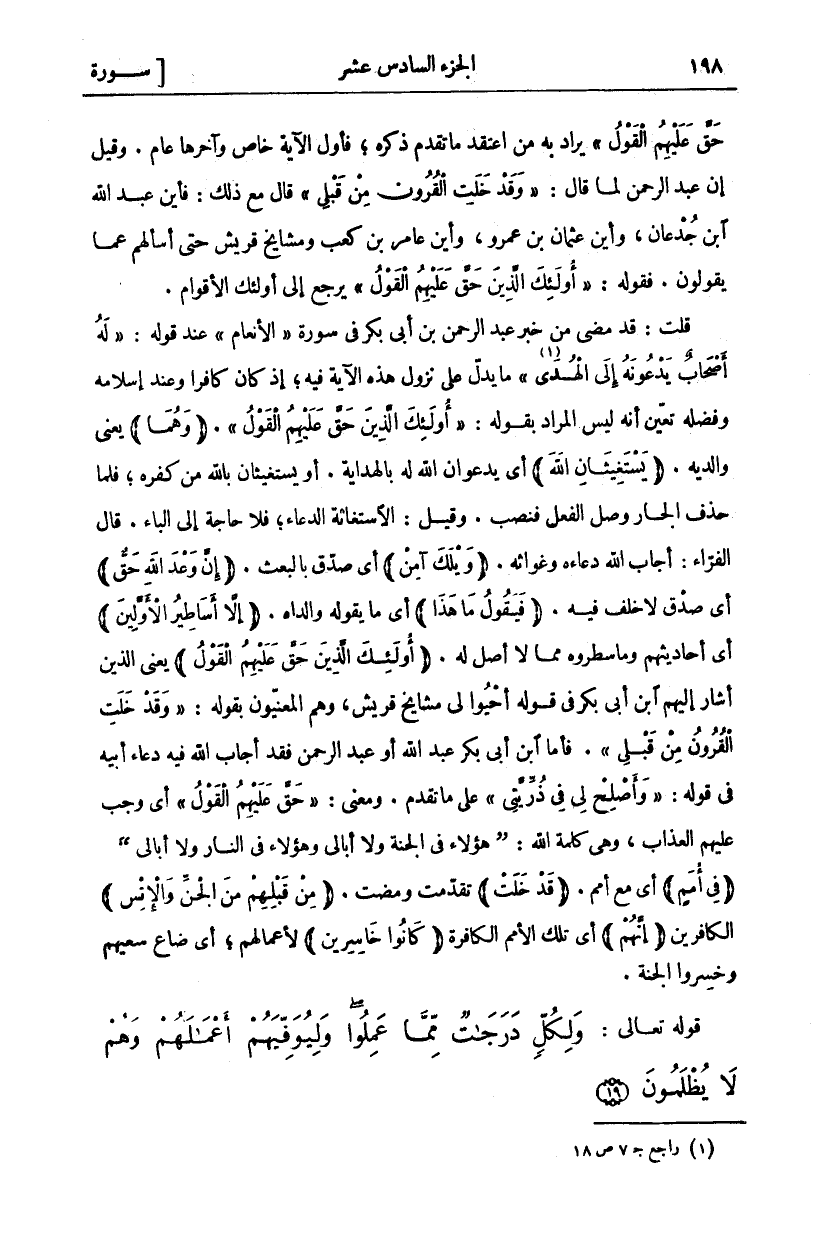 ١٩٨ الجزء السادس عشر [ ســورة
حَقَّ عَلَيْهِمُ الْقَوْلُ » يراد به من اعتقد ماتقدم ذكره ؛ فأول الآية خاص وآخرها عام . وقيل
إن عبد الرحمن لمـا قال : « وَقَدْ خَلَتِ الْقُرُونُ مِنْ قَبْلِي » قال مع ذلك : فأين عبـد الله
آبن جُدْعان ، وأين عثمان بن عمرو ، وأين عامر بن كعب ومشايخ قريش حتى أسألهم عمـا
يقولون . فقوله : « أُولَئِكَ الَّذِينَ حَقَّ عَلَيْهِمُ الْقَوْلُ » يرجع إلى أولئك الأقوام .
قلت : قد مضى من خبر عبد الرحمن بن أبى بكر فى سورة « الأنعام » عند قوله : « لَهُ
أَصْحَابٌ يَدْعُونَهُ إِلَى الْهُـدَى (١) » ما يدلّ على نزول هذه الآية فيه ؛ إذ كان كافرا وعند إسلامه
وفضله تعيّن أنه ليس المراد بقـوله : « أُولَئِكَ الَّذِينَ حَقَّ عَلَيْهِمُ الْقَوْلُ » . ﴿ وَهُمَـا ﴾ يعنى
والديه . ﴿ يَسْتَغِيثَـانِ اللَّهَ ﴾ أى يدعوان الله له بالهداية . أو يستغيثان بالله من كفره ؛ فلما
حذف الجـار وصل الفعل فنصب . وقيـل : الآستغاثة الدعاء؛ فلا حاجة إلى الباء . قال
الفرّاء : أجاب الله دعاءه وغواثه . ﴿ وَيْلَكَ آمِنْ ﴾ أى صدّق بالبعث . ﴿ إِنَّ وَعْدَ اللَّهِ حَقٌّ ﴾
أى صدْق لاخلف فيـه . ﴿ فَيَقُولُ مَا هَذَا ﴾ أى ما يقوله والداه . ﴿ إِلَّا أَسَاطِيرُ الْأَوَّلِينَ ﴾
أى أحاديثهم وماسطروه ممـا لا أصل له . ﴿ أُولَئِـكَ الَّذِينَ حَقَّ عَلَيْهِمُ الْقَوْلُ ﴾ يعنى الذين
أشار إليهم آبن أبى بكر فى قـوله أحْيُوا لى مشايخ قريش، وهم المعنيّون بقوله : « وَقَدْ خَلَتِ
الْقُرُونُ مِنْ قَبْـلِي » . فأما آبن أبى بكر عبد الله أو عبد الرحمن فقد أجاب الله فيه دعاء أبيه
فى قوله : « وَأَصْلِحْ لِي فِي ذُرِّيَّتِي » على ماتقدم . ومعنى : « حَقَّ عَلَيْهِمُ الْقَوْلُ » أى وجب
عليهم العذاب ، وهى كلمة الله : ” هؤلاء فى الجنة ولا أبالى وهؤلاء فى النـار ولا أبالى “
﴿ فِي أُمَمٍ ﴾ أى مع أمم . ﴿ قَدْ خَلَتْ ﴾ تقدّمت ومضت . ﴿ مِنْ قَبْلِهِمْ مِنَ الْجِنِّ وَالْإِنْسِ ﴾
الكافرين ﴿ إِنَّهُمْ ﴾ أى تلك الأمم الكافرة ﴿ كَانُوا خَاسِرِين ﴾ لأعمالهم ؛ أى ضاع سعيهم
وخسروا الجنة .
قوله تعـالى : وَلِـكُلٍّ دَرَجَـٰتٌ مِّمَّـا عَمِلُوا۟ ۖ وَلِيُوَفِّيَهُمْ أَعْمَـٰلَهُمْ وَهُمْ
لَا يُظْلَمُونَ ﴿١٩﴾
(١) راجع جـ ٧ ص ١٨